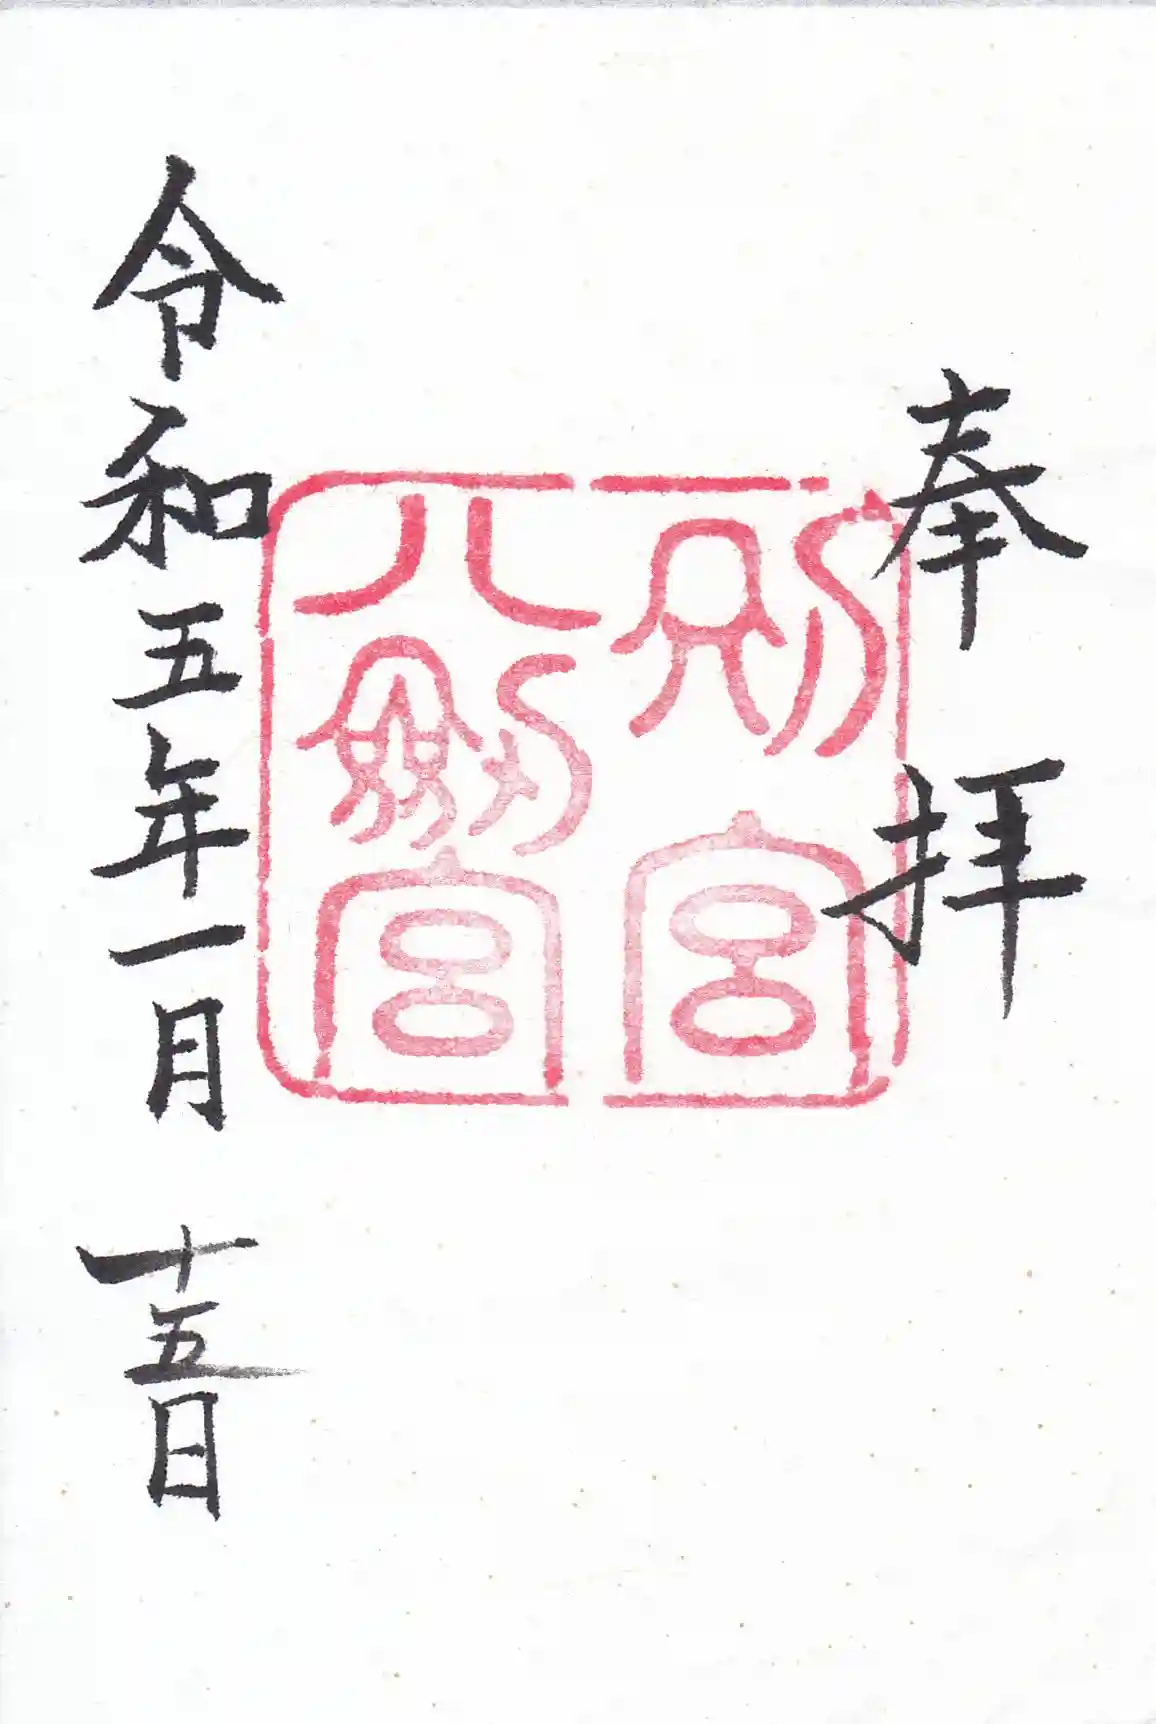 奉拝
別宮
八劔宮
令和五年一月十五日